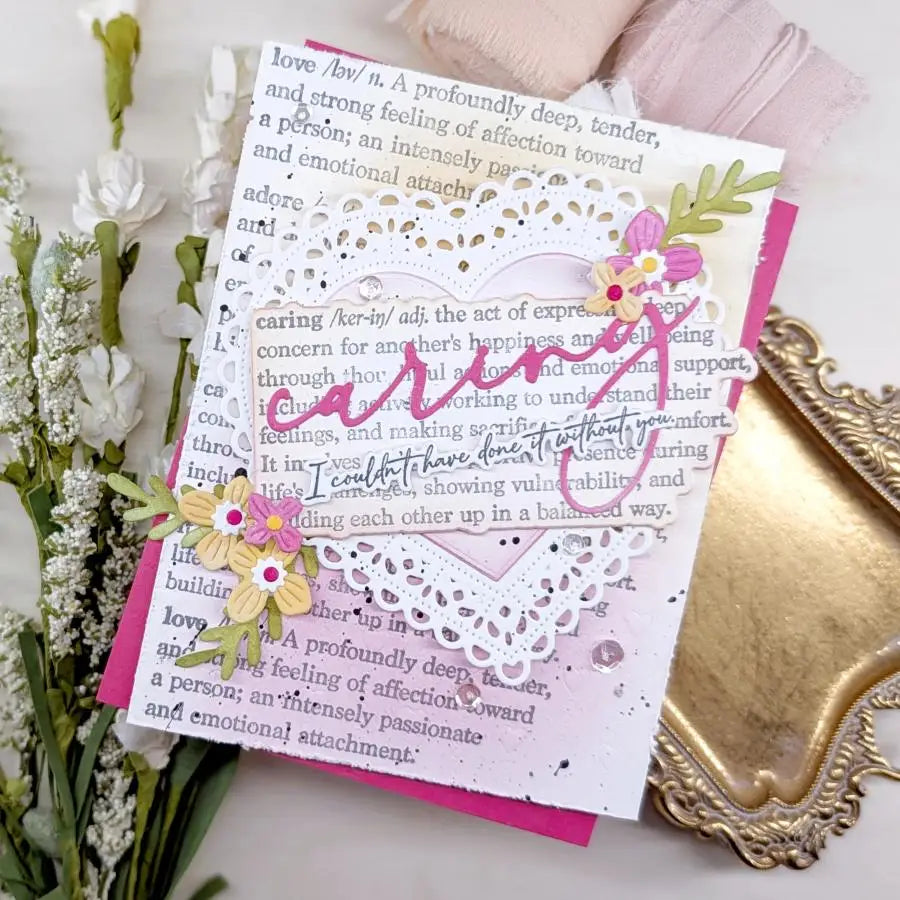 love /ləv/ n. A profoundly deep, tender,
and strong feeling of affection toward
a person; an intensely passionate
and emotional attach
adore
and
of
caring /ker-iŋ/ adj. the act of expre deep
concern for another's happiness and well-being
through ful and emotional support,
actively working to understand their
feelings, and making mfort.
It in ves presence during
life's showing vulnerability, and
ding each other up in a balanced way.
caring
I couldn't have done it without you.
ca
con
thro
inclu
life
buildin other up in a
love A profoundly deep, tender,
and strong feeling of affection toward
a person; an intensely passionate
and emotional attachment.